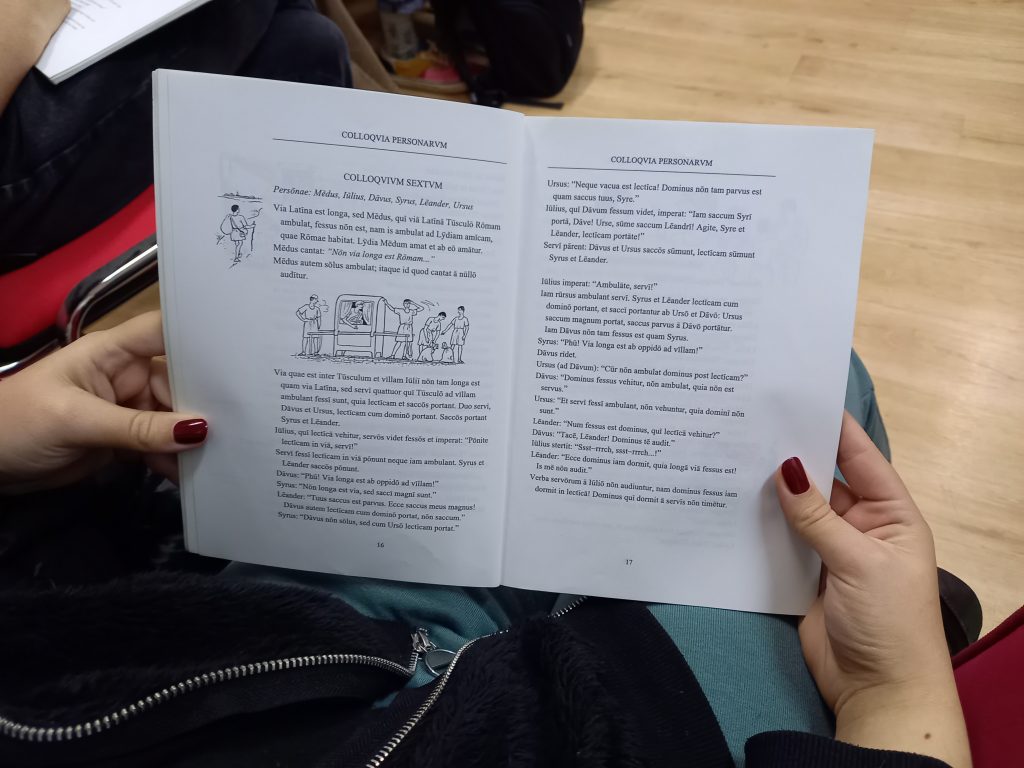 COLLOQVIA PERSONARVM
COLLOQVIVM SEXTVM
Persōnae: Mēdus, Iūlius, Dāvus, Syrus, Lēander, Ursus
Via Latīna est longa, sed Mēdus, quī viā Latīnā Tūsculō Rōmam
ambulat, fessus nōn est, nam is ambulat ad Lȳdiam amīcam,
quae Rōmae habitat. Lȳdia Mēdum amat et ab eō amātur.
Mēdus cantat: “Nōn via longa est Rōmam...”
Mēdus autem sōlus ambulat; itaque id quod cantat ā nūllō
audītur.
Via quae est inter Tūsculum et vīllam Iūliī nōn tam longa est
quam via Latīna, sed servī quattuor quī Tūsculō ad vīllam
ambulant fessī sunt, quia lectīcam et saccōs portant. Duo servī,
Dāvus et Ursus, lectīcam cum dominō portant. Saccōs portant
Syrus et Lēander.
Iūlius, quī lectīcā vehitur, servōs videt fessōs et imperat: “Pōnite
lectīcam in viā, servī!”
Servī fessī lectīcam in viā pōnunt neque iam ambulant. Syrus et
Lēander saccōs pōnunt.
Dāvus: “Phū! Via longa est ab oppidō ad vīllam!”
Syrus: “Nōn longa est via, sed saccī magnī sunt.”
Lēander: “Tuus saccus est parvus. Ecce saccus meus magnus!
Dāvus autem lectīcam cum dominō portat, nōn saccum.”
Syrus: “Dāvus nōn sōlus, sed cum Ursō lectīcam portat.”
16
COLLOQVIA PERSONARVM
Ursus: “Neque vacua est lectīca! Dominus nōn tam parvus est
quam saccus tuus, Syre.”
Iūlius, quī Dāvum fessum videt, imperat: “Iam saccum Syrī
portā, Dāve! Urse, sūme saccum Lēandrī! Agite, Syre et
Lēander, lectīcam portāte!”
Servī pārent: Dāvus et Ursus saccōs sūmunt, lectīcam sūmunt
Syrus et Lēander.
Iūlius imperat: “Ambulāte, servī!”
Iam rūrsus ambulant servī. Syrus et Lēander lectīcam cum
dominō portant, et saccī portantur ab Ursō et Dāvō: Ursus
saccum magnum portat, saccus parvus ā Dāvō portātur.
Iam Dāvus nōn tam fessus est quam Syrus.
Syrus: “Phū! Via longa est ab oppidō ad vīllam!”
Dāvus rīdet.
Ursus (ad Dāvum): “Cūr nōn ambulat dominus post lectīcam?”
Dāvus: “Dominus fessus vehitur, nōn ambulat, quia nōn est
servus.”
Ursus: “Et servī fessī ambulant, nōn vehuntur, quia dominī nōn
sunt.”
Lēander: “Num fessus est dominus, quī lectīcā vehitur?”
Dāvus: “Tacē, Lēander! Dominus tē audit.”
Iūlius stertit: “Ssst–rrrch, ssst–rrrch...!”
Lēander: “Ecce dominus iam dormit, quia longā viā fessus est!
Is mē nōn audit.”
Verba servōrum ā Iūliō nōn audiuntur, nam dominus fessus iam
dormit in lectīcā! Dominus quī dormit ā servīs nōn timētur.
17